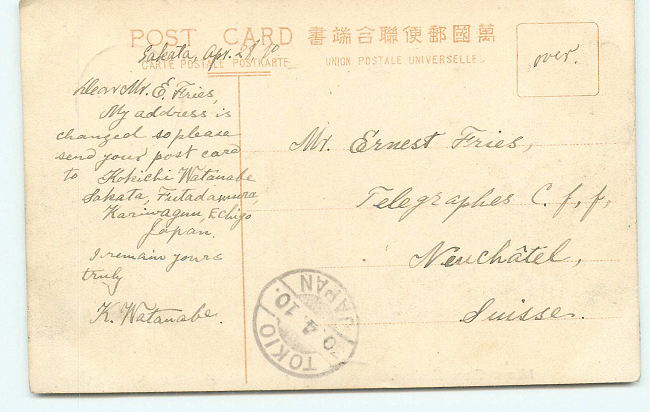 POST CARD 書端合聯便郵國萬
CARTE POSTALE POSTKARTE UNION POSTALE UNIVERSELLE
Sakata, Apr. 28 '10
over.
Dear Mr. E. Fries,
My address is
changed so please
send your post card
to Kokichi Watanabe
Sakata, Futadamura,
Kariwagun, Echigo
Japan.
I remain yours
truly
K. Watanabe.
Mr. Ernest Fries,
Telegraphes C. f. f.
Neuchâtel,
Suisse.
TOKIO
JAPAN
.4.10.